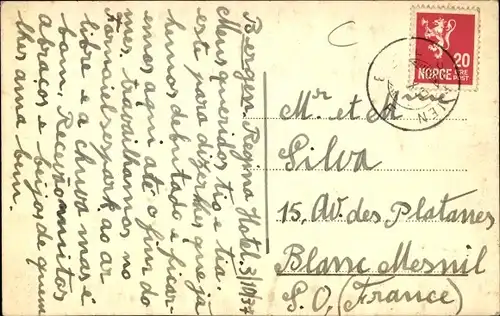 Bergen. Regina Hotel. 3/10/37
Meus queridos tio e tia.
este para dizer lhes que já
hemos debutado e ficar-
emos aqui até o fim do
mes. trabalhamos no
ao ar
libre e a chuva mas é
bom. Recevem muitos
abraços e beijos de quem
lhes ama bem.
C
NORGE
20
ØRE
POST
Mr et
Silva
15, Av. des Platanes
Blanc Mesnil
S. O. (France)